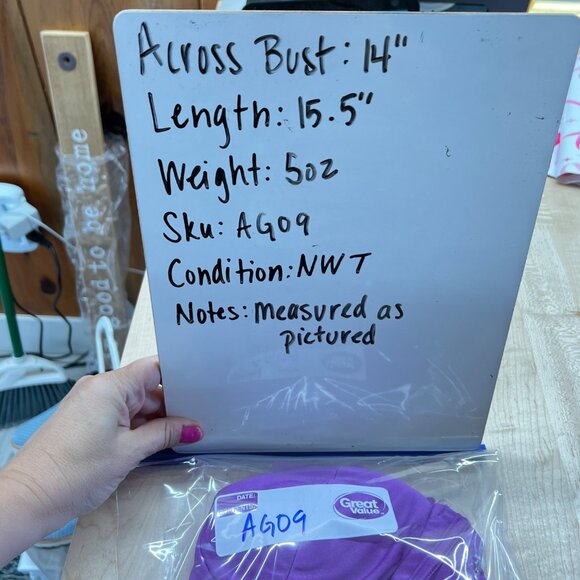 Across Bust: 14"
Length: 15.5"
Weight: 5oz
Sku: AG09
Condition: NWT
Notes: measured as
pictured
good to be home
DATE:
Great
Value
AG09